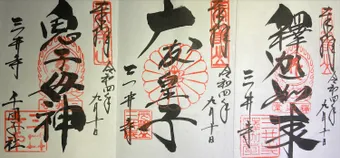 奉拝
令和四年九月十日
釋迦如来
三井寺
奉拝
令和四年九月十日
大友皇子
三井寺
奉拝
令和四年九月十日
鬼子母神
三井寺
千團子社